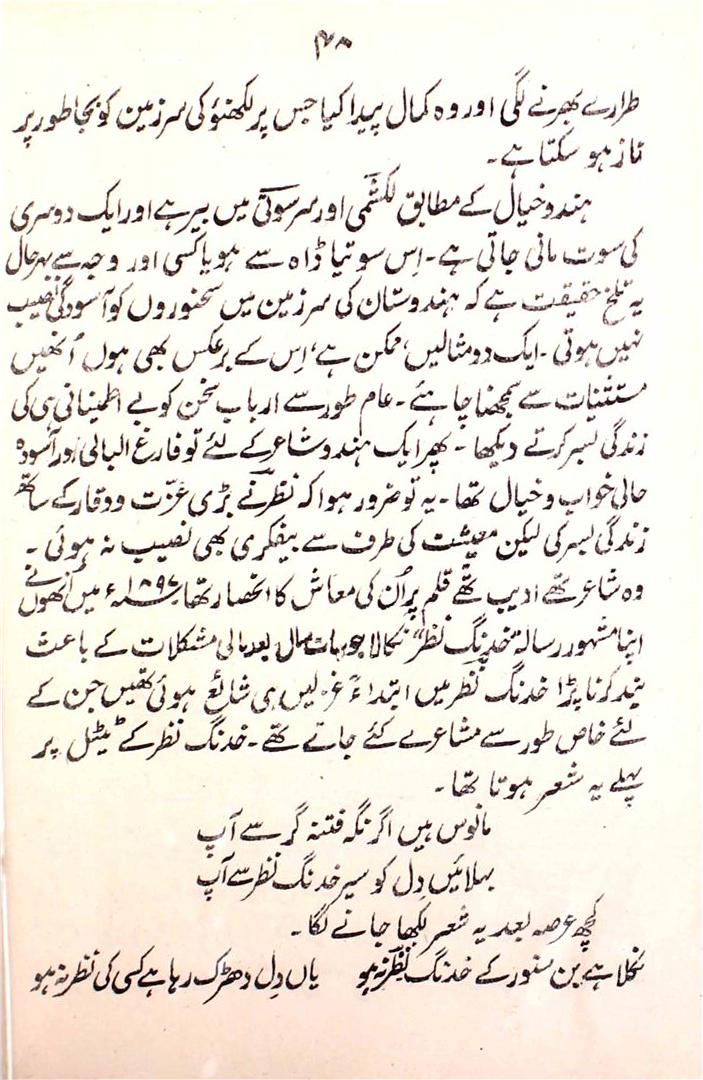 ۴۸
طرارے بھرنے لگی اور وہ کمال پیدا کیا جس پر لکھنؤ کی سرزمین کو بجا طور پر
ناز ہو سکتا ہے۔
ہندو خیال کے مطابق لکشمی اور سرسوتی میں بیر ہے اور ایک دوسری
کی سوت مانی جاتی ہے۔ اِس سوتیا ڈاہ سے ہو یا کسی اور وجہ سے بہرحال
یہ تلخ حقیقت ہے کہ ہندوستان کی سرزمین میں سخنوروں کو آسودگی نصیب
نہیں ہوتی۔ ایک دو مثالیں، ممکن ہے، اِس کے برعکس بھی ہوں اُنھیں
مستثنیات سے سمجھنا چاہئے۔ عام طور سے ارباب سخن کو بے اطمینانی ہی کی
زندگی بسر کرتے دیکھا۔ پھر ایک ہندو شاعر کے لئے تو فارغ البالی اور آسودہ
حالی خواب و خیال تھا۔ یہ تو ضرور ہوا کہ نظرؔ نے بڑی عزّت و وقار کے ساتھ
زندگی بسر کی لیکن معیشت کی طرف سے بیفکری بھی نصیب نہ ہوئی۔
وہ شاعر تھے ادیب تھے قلم پر اُن کی معاش کا انحصار تھا ۱۸۹۷ء میں اُنھوں نے
اپنا مشہور رسالہ "خدنگ نظر" نکالا جو سات سال بعد مالی مشکلات کے باعث
بند کرنا پڑا خدنگ نظر میں ابتداءً غزلیں ہی شائع ہوئی تھیں جن کے
لئے خاص طور سے مشاعرے کئے جاتے تھے۔ خدنگ نظر کے ٹیٹل پر
پہلے یہ شعر ہوتا تھا۔
مانوس ہیں اگر نگہ فتنہ گر سے آپ
بہلائیں دِل کو سیر خدنگ نظر سے آپ
کچھ عرصہ بعد یہ شعر لکھا جانے لگا۔
نکلا ہے بن سنور کے خدنگ نظرؔ نہ ہو یاں دِل دھڑک رہا ہے کسی کی نظر نہ ہو